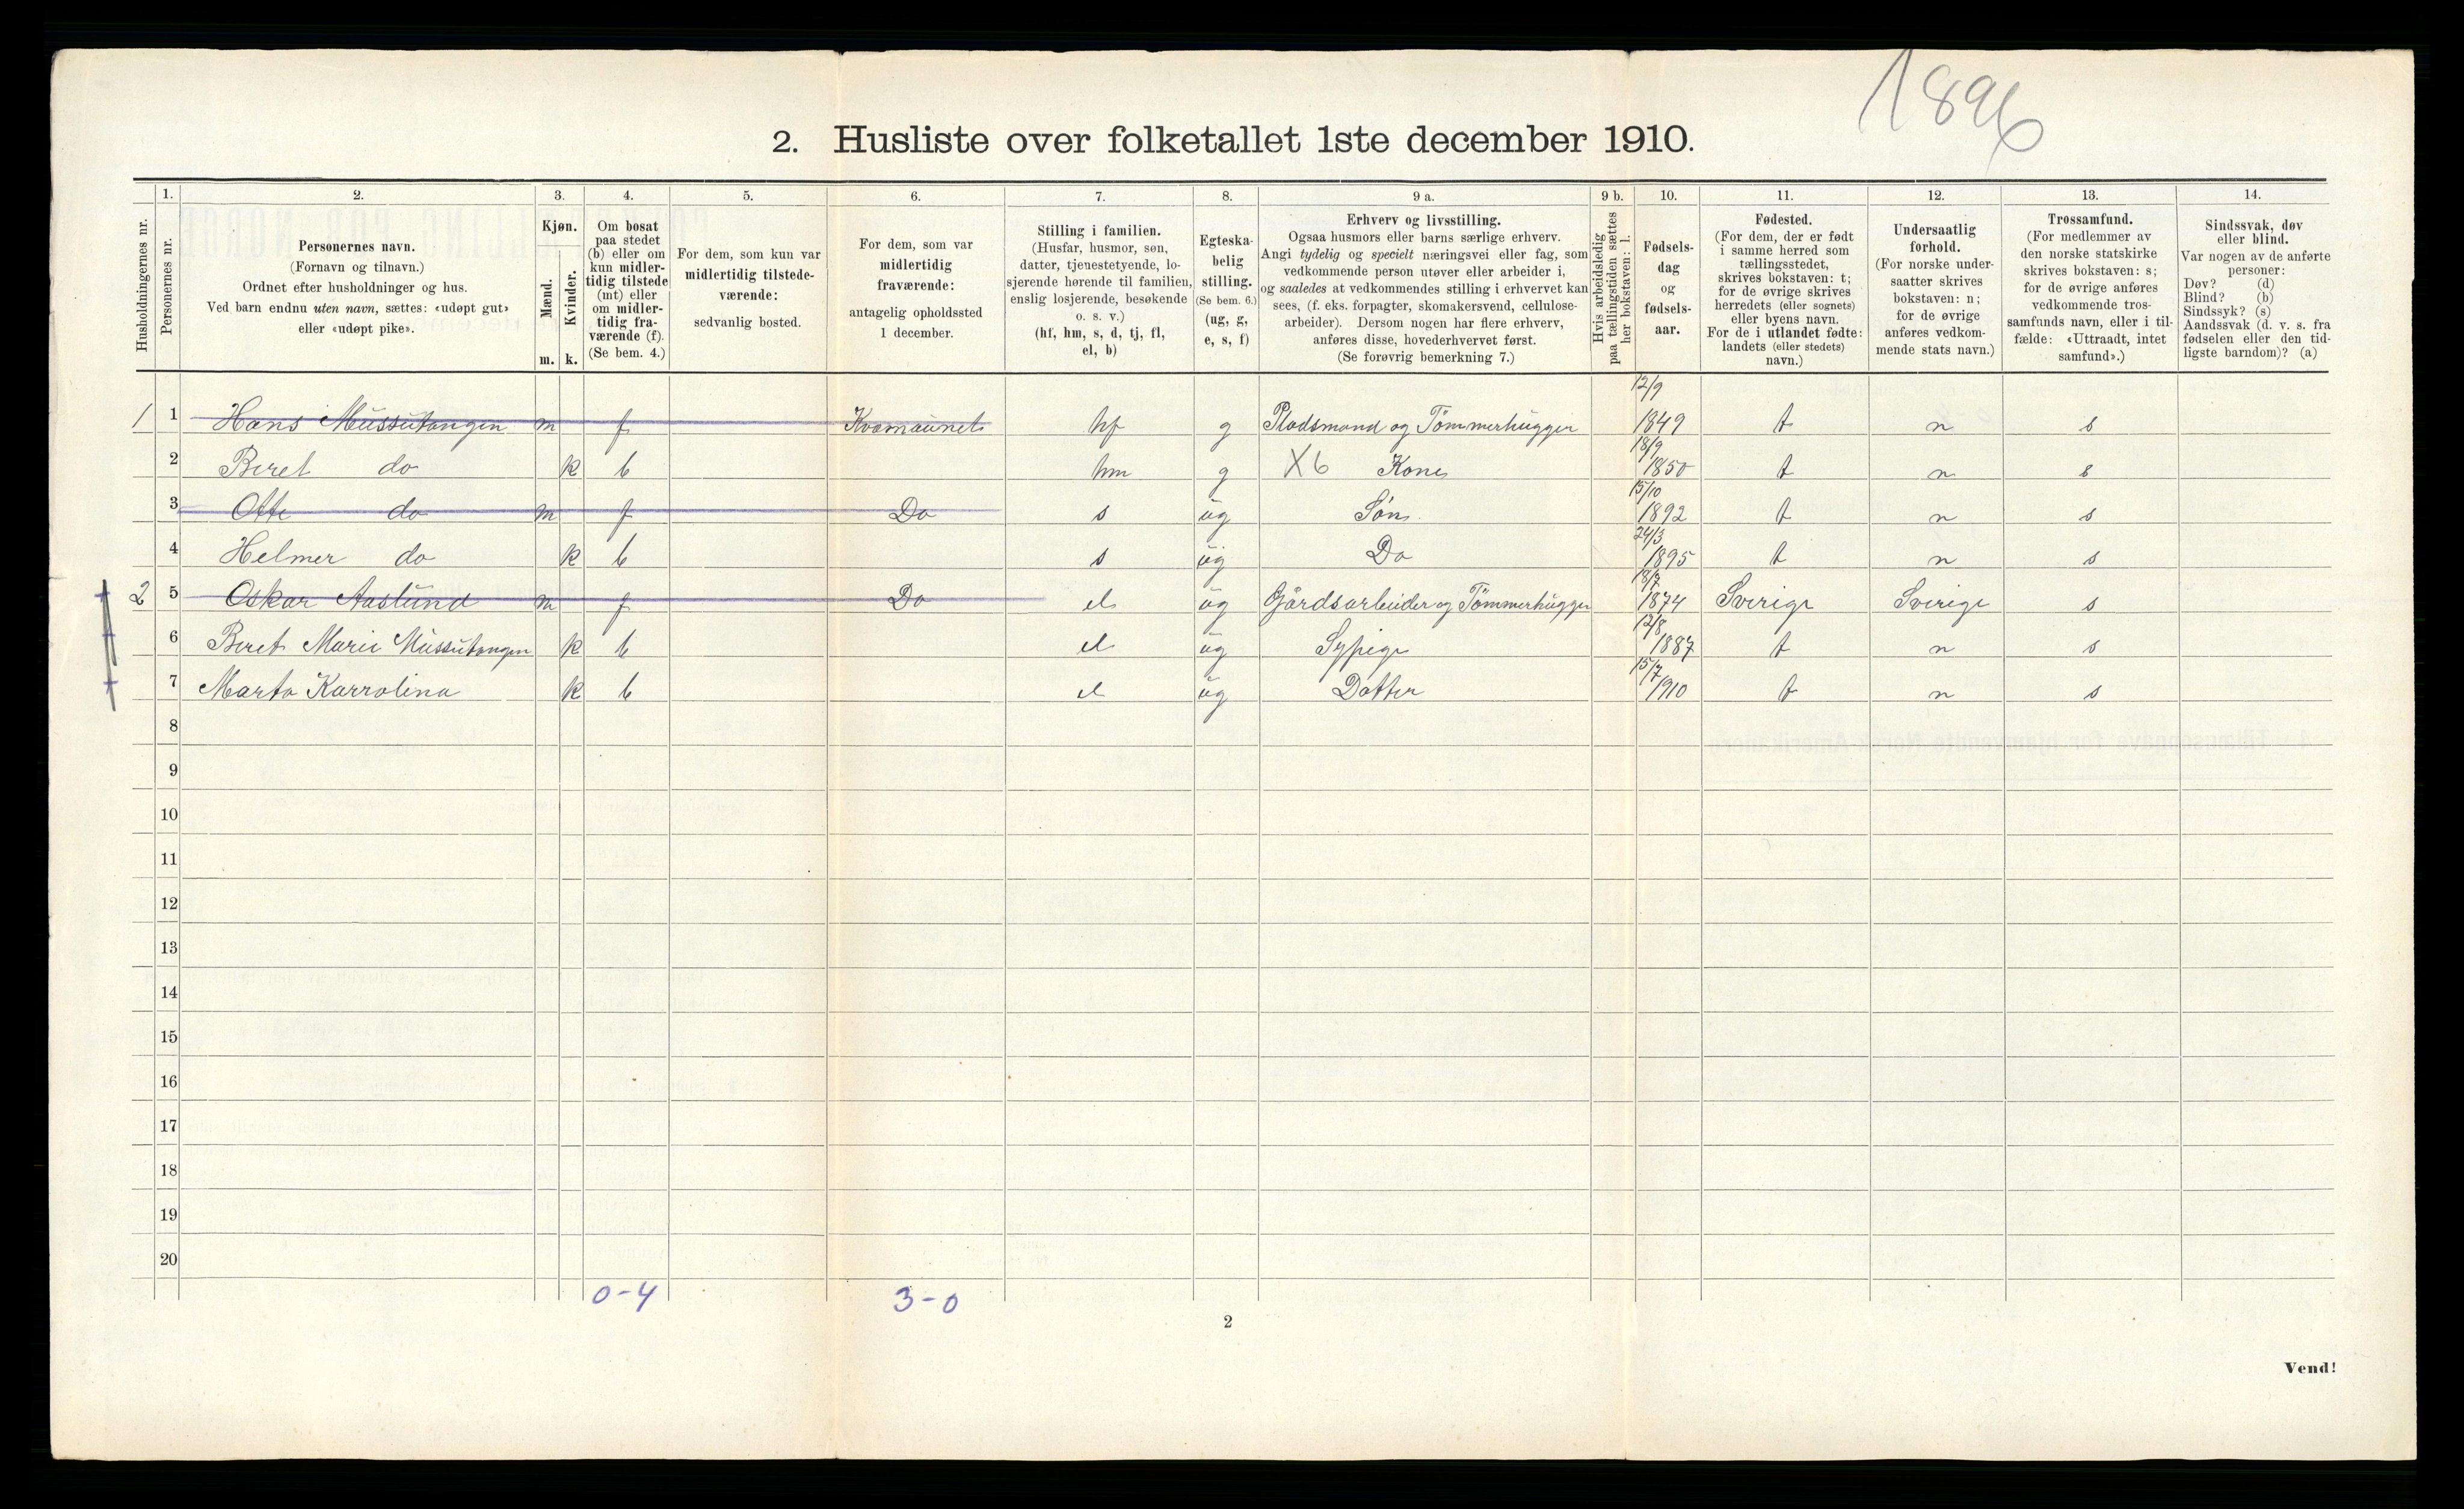 1896
2. Husliste over folketallet 1ste december 1910.
Husholdningernes nr.
1.
Personernes nr.
2.
Personernes navn.
(Fornavn og tilnavn.)
Ordnet efter husholdninger og hus.
Ved barn endnu uten navn, sættes: «udøpt gut»
eller «udøpt pike».
3.
Kjøn.
Mænd.
m.
Kvinder.
k.
4.
Om bosat
paa stedet
(b) eller om
kun midler-
tidig tilstede
(mt) eller
om midler-
tidig fra-
værende (f).
(Se bem. 4.)
5.
For dem, som kun var
midlertidig tilstede-
værende:
sedvanlig bosted.
6.
For dem, som var
midlertidig
fraværende:
antagelig opholdssted
1 december.
7.
Stilling i familien.
(Husfar, husmor, søn,
datter, tjenestetyende, lo-
sjerende hørende til familien,
enslig losjerende, besøkende
o. s. v.)
(hf, hm, s, d, tj, fl,
el, b)
8.
Egteska-
belig
stilling.
(Se bem. 6.)
(ug, g,
e, s, f)
9 a.
Erhverv og livsstilling.
Ogsaa husmors eller barns særlige erhverv.
Angi tydelig og specielt næringsvei eller fag, som
vedkommende person utøver eller arbeider i,
og saaledes at vedkommendes stilling i erhvervet kan
sees, (f. eks. forpagter, skomakersvend, cellulose-
arbeider). Dersom nogen har flere erhverv,
anføres disse, hovederhvervet først.
(Se forøvrig bemerkning 7.)
9 b.
Hvis arbeidsledig
paa tællingstiden sættes
her bokstaven: l.
10.
Fødsels-
dag
og
fødsels-
aar.
11.
Fødested.
(For dem, der er født
i samme herred som
tællingsstedet,
skrives bokstaven: t;
for de øvrige skrives
herredets (eller sognets)
eller byens navn.
For de i utlandet fødte:
landets (eller stedets)
navn.)
12.
Undersaatlig
forhold.
(For norske under-
saatter skrives
bokstaven: n;
for de øvrige
anføres vedkom-
mende stats navn.)
13.
Trossamfund.
(For medlemmer av
den norske statskirke
skrives bokstaven: s;
for de øvrige anføres
vedkommende tros-
samfunds navn, eller i til-
fælde: «Uttraadt, intet
samfund».)
14.
Sindssvak, døv
eller blind.
Var nogen av de anførte
personer:
Døv? (d)
Blind? (b)
Sindssyk? (s)
Aandssvak (d. v. s. fra
fødselen eller den tid-
ligste barndom)? (a)
1 1 Hans Mussutangen m f Kvamaunet hf g Pladsmand og Tømmerhugger 12/9 1849 t n s
2 Beret do k b hm g X6 Kone 18/9 1850 t n s
3 Otte do m f Do s ug Søn 15/10 1892 t n s
4 Helmer do k b s ug Do 24/3 1895 t n s
2 5 Oskar Aaslund m f Do el ug Gårdsarbeider og Tømmerhugger 18/7 1874 Sverige Sverige s
6 Beret Marie Mussutangen k b el ug Sypige 12/8 1887 t n s
7 Marta Karrolina k b el ug Datter 15/7 1910 t n s
8
9
10
11
12
13
14
15
16
17
18
19
20
0-4 3-0
2
Vend!